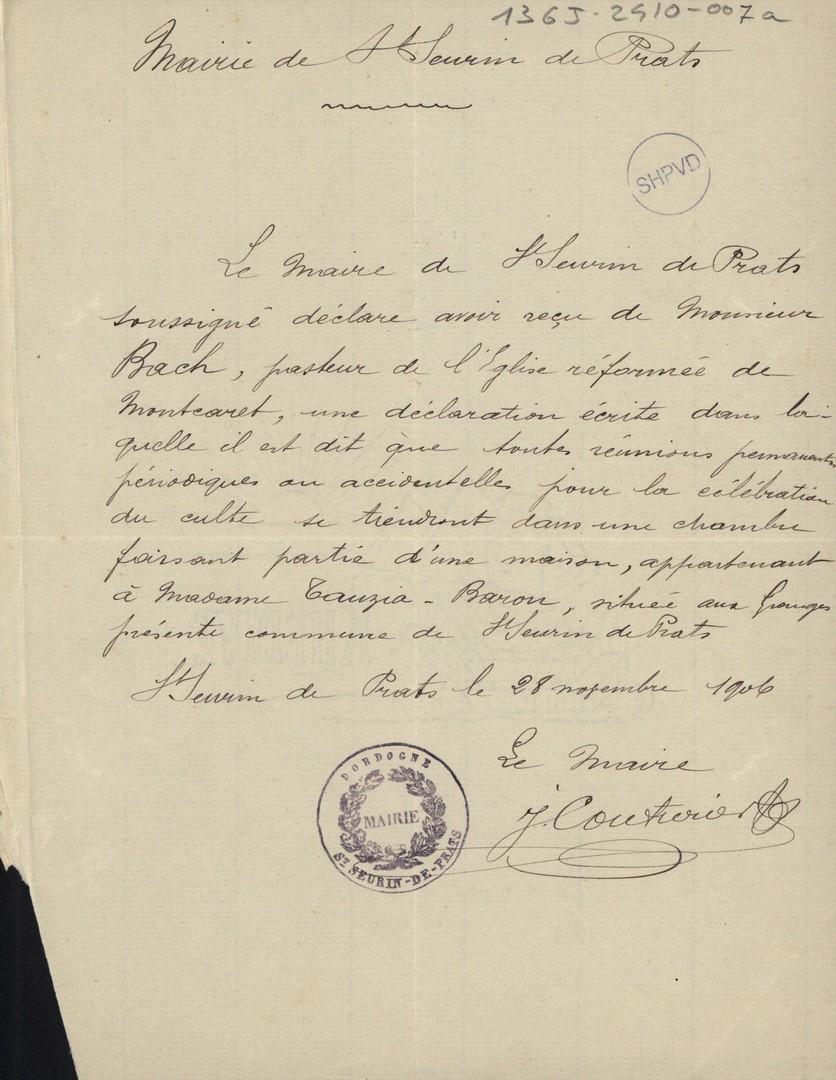 136J-2910-007a
Mairie de St Seurin de Prats
SHPVD
Le Maire de St Seurin de Prats
soussigné déclare avoir reçu de Monsieur
Bach, pasteur de l'Eglise réformée de
Montcaret, une déclaration écrite dans la-
quelle il est dit que toutes réunions permanentes
périodiques ou accidentelles pour la célébration
du culte se tiendront dans une chambre
faisant partie d'une maison, appartenant
à Madame Tauzia-Baron, située aux Granges
présente commune de St Seurin de Prats
St Seurin de Prats le 28 novembre 1906
Le Maire
J. Couturier
DORDOGNE
MAIRIE
ST SEURIN-DE-PRATS